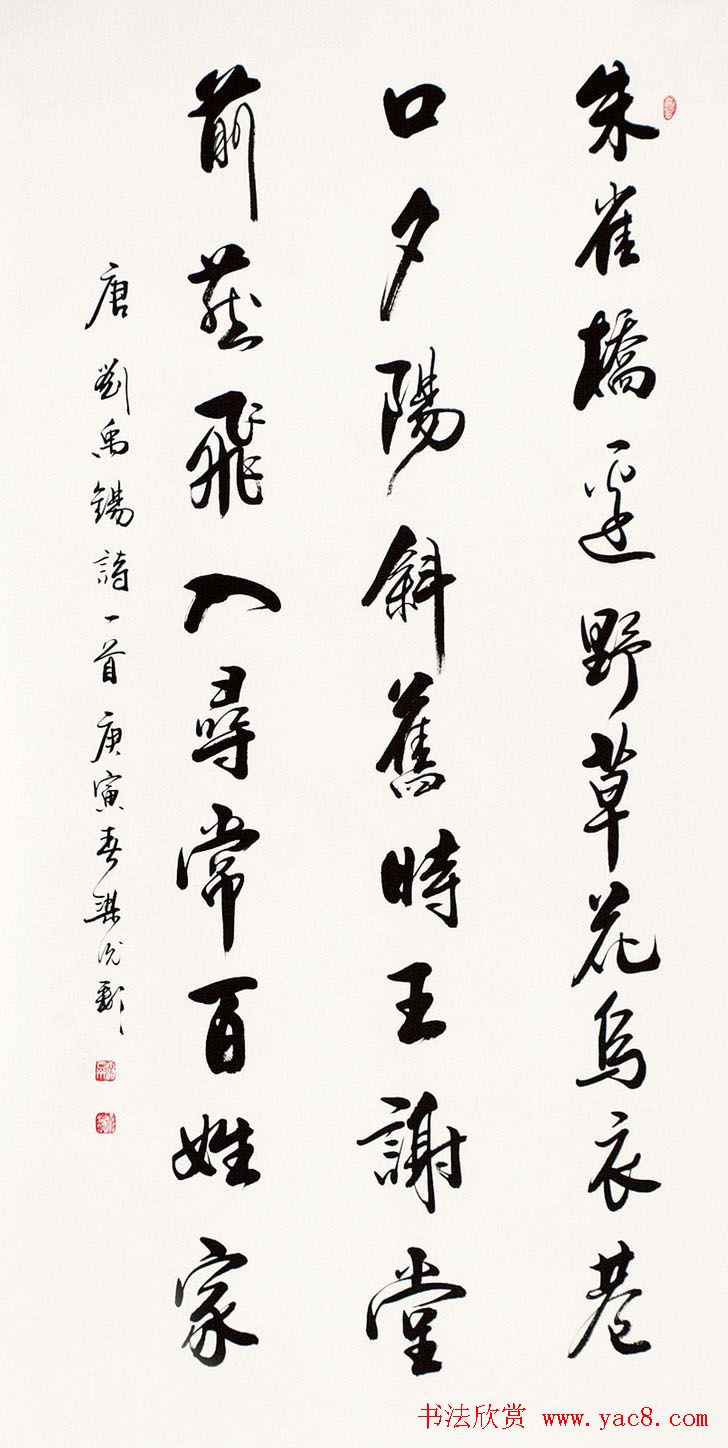 朱雀橋邊野草花烏衣巷
口夕陽斜舊時王謝堂
前燕飛入尋常百姓家
唐劉禹錫詩一首庚寅春梁
书法欣赏 www.yac8.com